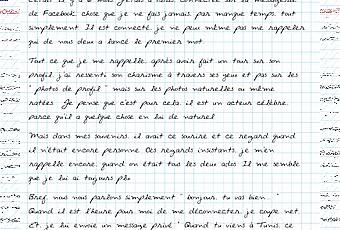 de Facebook, chose que je ne fais jamais par manque temps tout
simplement. Il est connecté, je ne peux même pas me rappeler
qui de nous deux a lancé le premier mot.
Tout ce que je me rappelle, après avoir fait un tour sur son
profil, j'ai ressenti son charisme à travers ses yeux et pas sur les
"photos de profil" mais sur les photos naturelles ou même
ratées. Je pense que c'est pour cela, il est un acteur célèbre,
parce qu'il a quelque chose en lui de naturel.
Mais dans mes souvenirs, il avait ce sourire et ce regard quand
il n'était encore personne. Ces regards insistants, je m'en
rappelle encore, quand on était tout les deux ados. Il me semble
que je lui ai toujours plu.
Bref, nous nous parlons simplement "bonjour, tu vas bien..."
Quand il est l'heure pour moi de me déconnecter, je coupe net.
Et je lui envoie un message privé "Quand tu viens à Tunis, ce